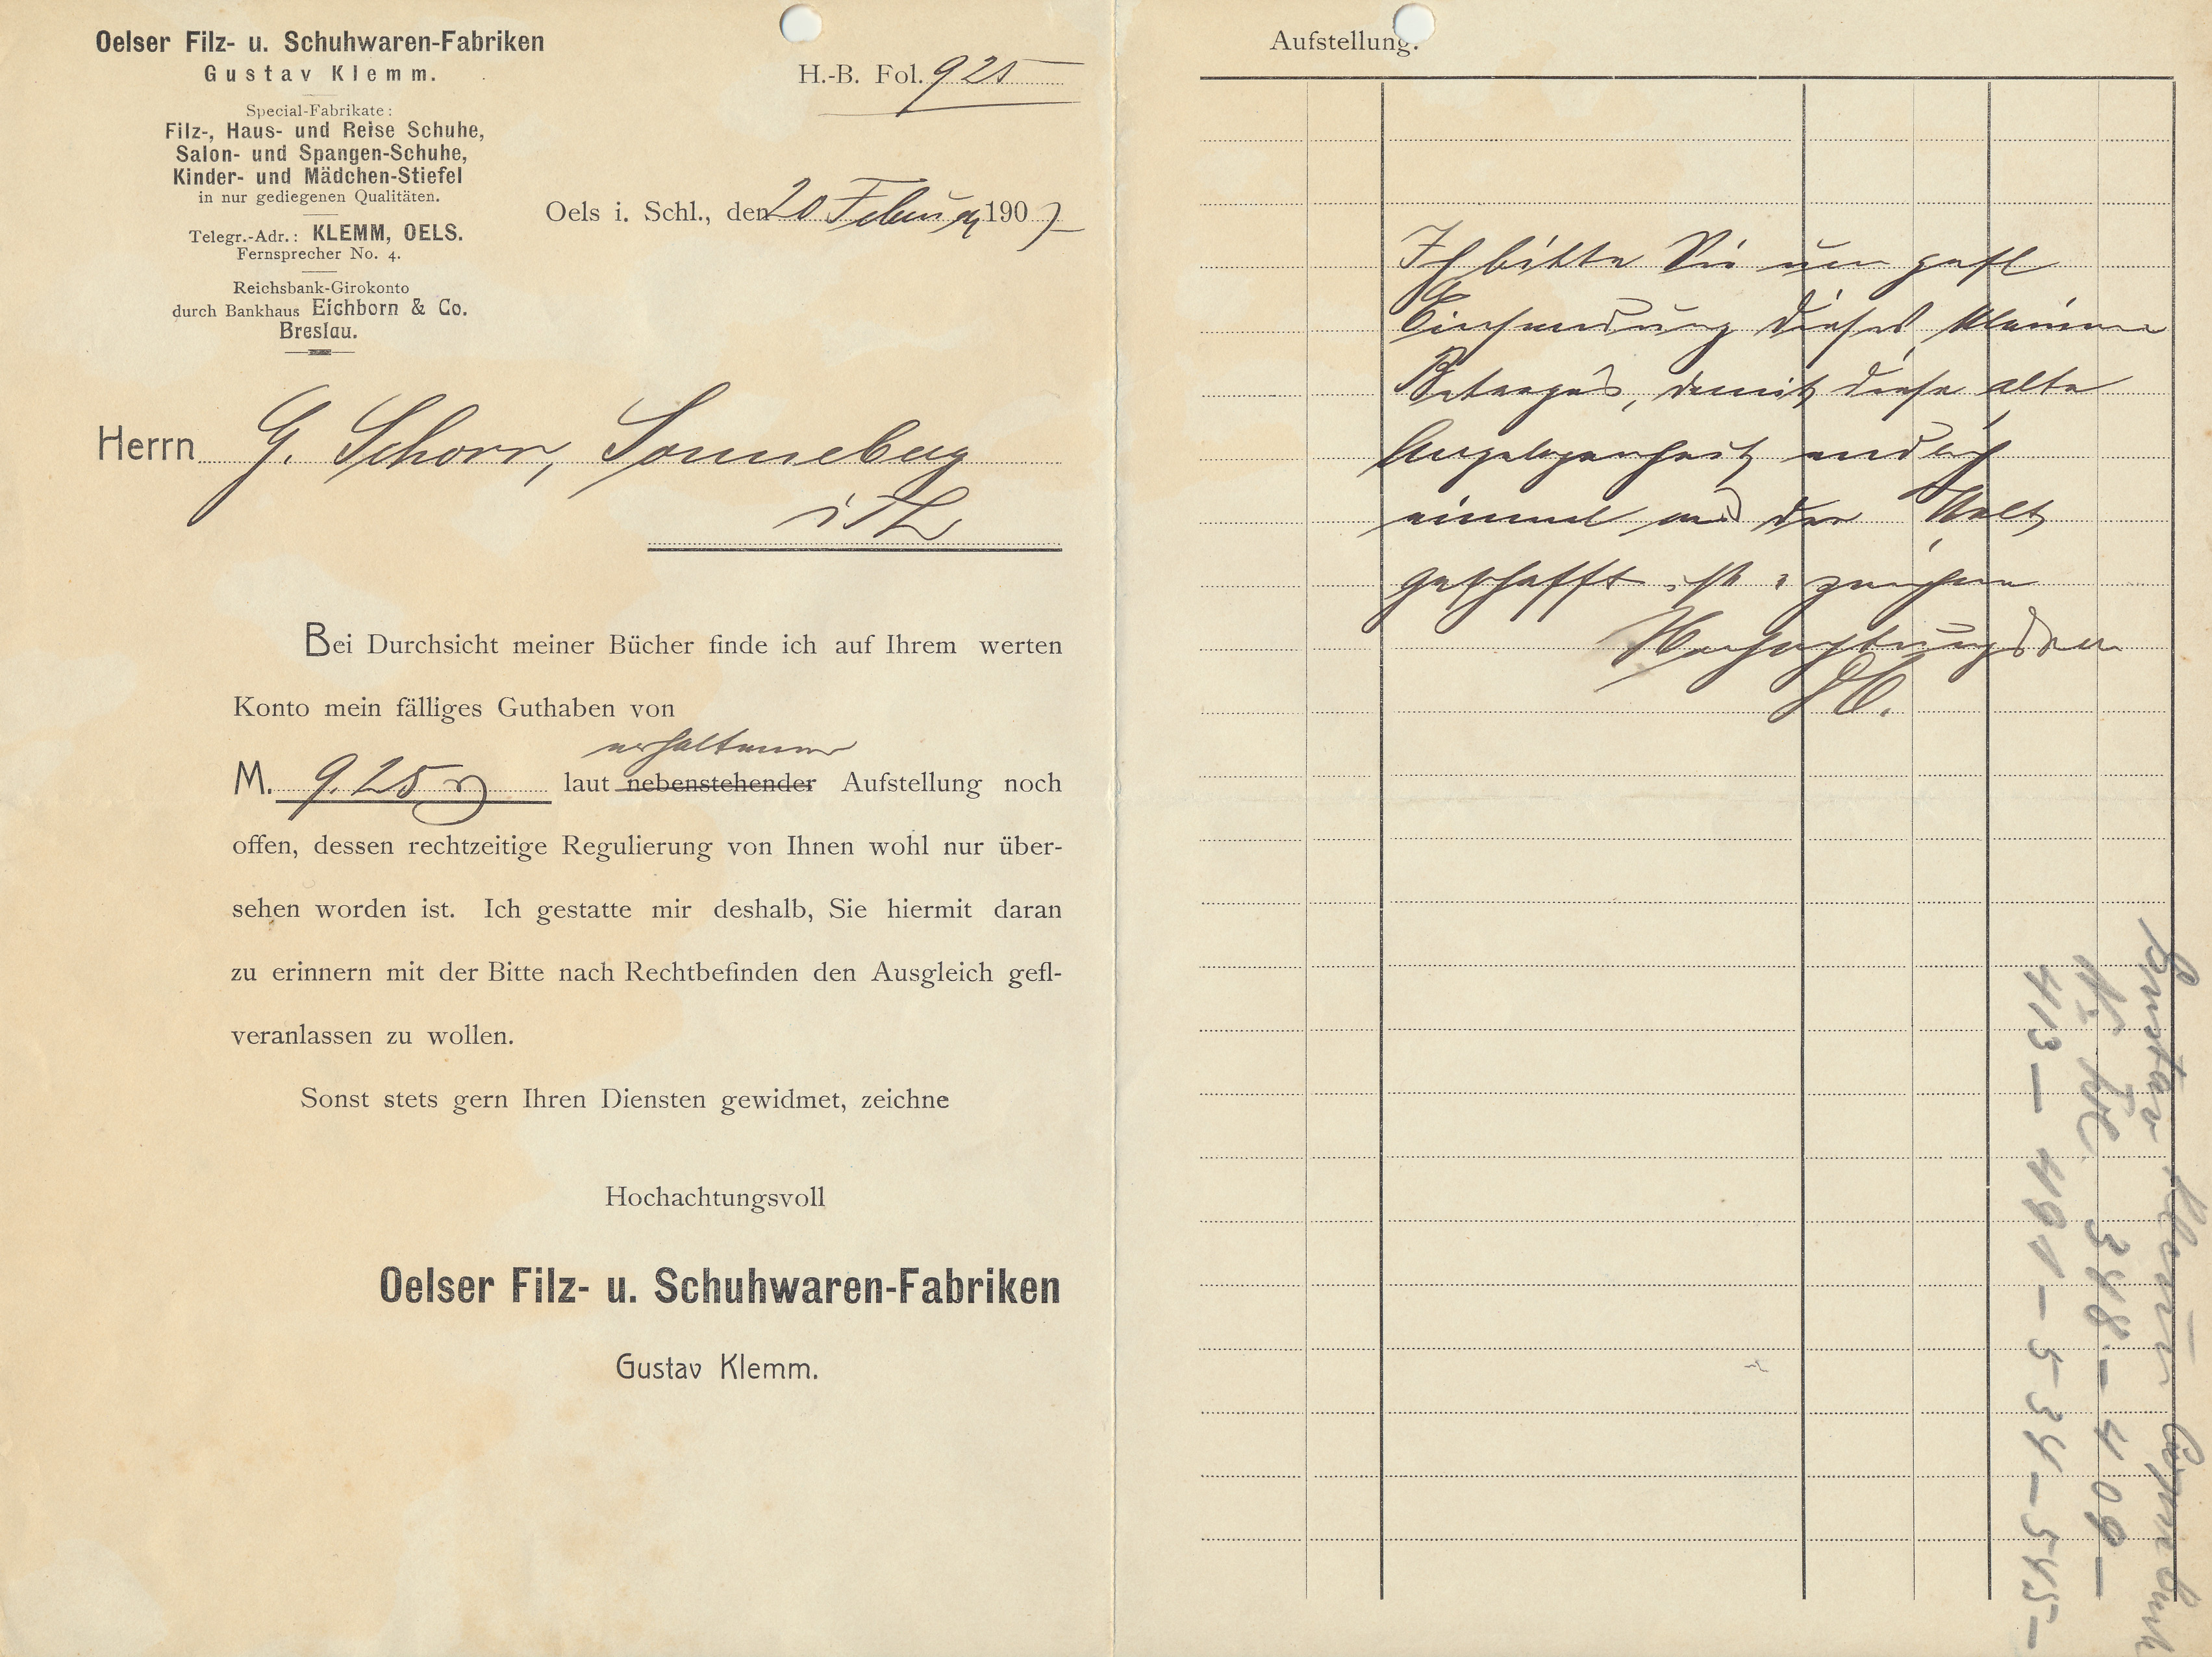 Oelser Filz- u. Schuhwaren-Fabriken
Gustav Klemm.
Special-Fabrikate:
Filz-, Haus- und Reise Schuhe,
Salon- und Spangen-Schuhe,
Kinder- und Mädchen-Stiefel
in nur gediegenen Qualitäten.
Telegr.-Adr.: KLEMM, OELS.
Fernsprecher No. 4.
Reichsbank-Girokonto
durch Bankhaus Eichborn & Co.
Breslau.
H.-B. Fol. 925
Oels i. Schl., den 20 Februar 1907
Herrn G. Schorr, Sonneberg
i Th
Bei Durchsicht meiner Bücher finde ich auf Ihrem werten
Konto mein fälliges Guthaben von
erhaltener
M. 9.25 laut nebenstehender Aufstellung noch
offen, dessen rechtzeitige Regulierung von Ihnen wohl nur über-
sehen worden ist. Ich gestatte mir deshalb, Sie hiermit daran
zu erinnern mit der Bitte nach Rechtbefinden den Ausgleich gefl-
veranlassen zu wollen.
Sonst stets gern Ihren Diensten gewidmet, zeichne
Hochachtungsvoll
Oelser Filz- u. Schuhwaren-Fabriken
Gustav Klemm.
Aufstellung.
Ich bitte Sie um gefl
Einsendung dieses kleinen
Betrages, damit diese alte
Angelegenheit endlich
einmal aus der Welt
geschafft ist & zeichne
Hochachtungsvoll
DO.
Gustav Klemm
348 – 409 –
413 – 491 – 534 – 545 –